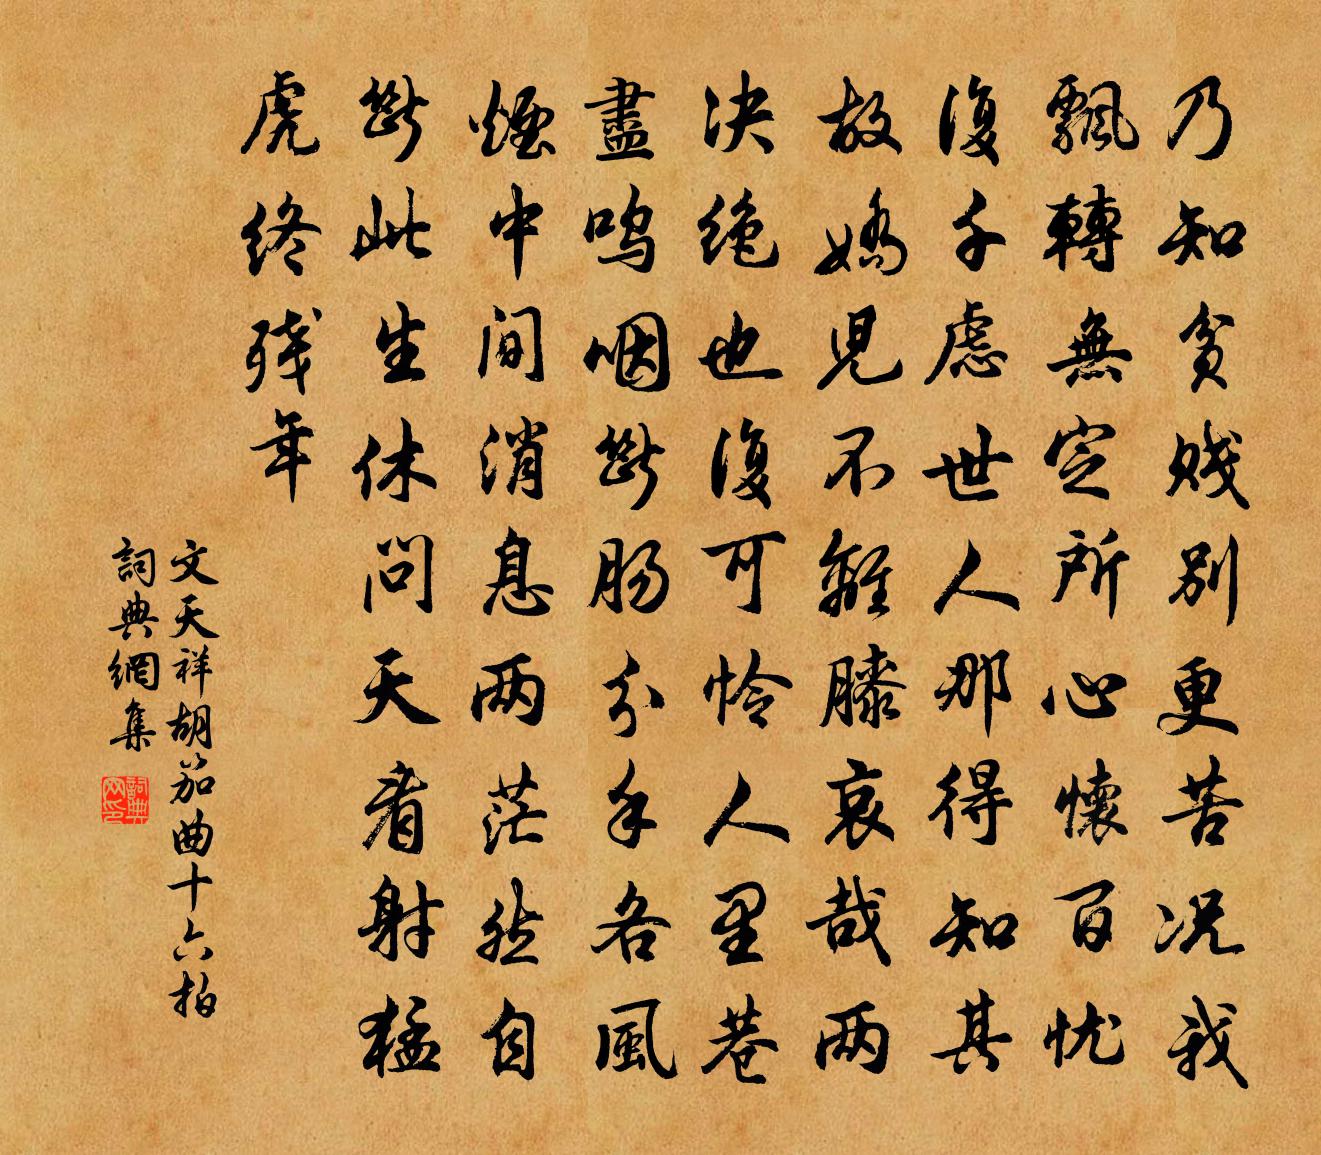 乃知貧賤別更苦況我
飄轉無定所心懷百忧
復千慮世人那得知其
故嬌児不離膝哀哉两
决绝也復可怜人里巷
盡呜咽断肠分手各風
煙中间消息两茫然自
断此生休问天看射猛
虎终残年
文天祥胡笳曲十六拍
詞典網集
詞典网印